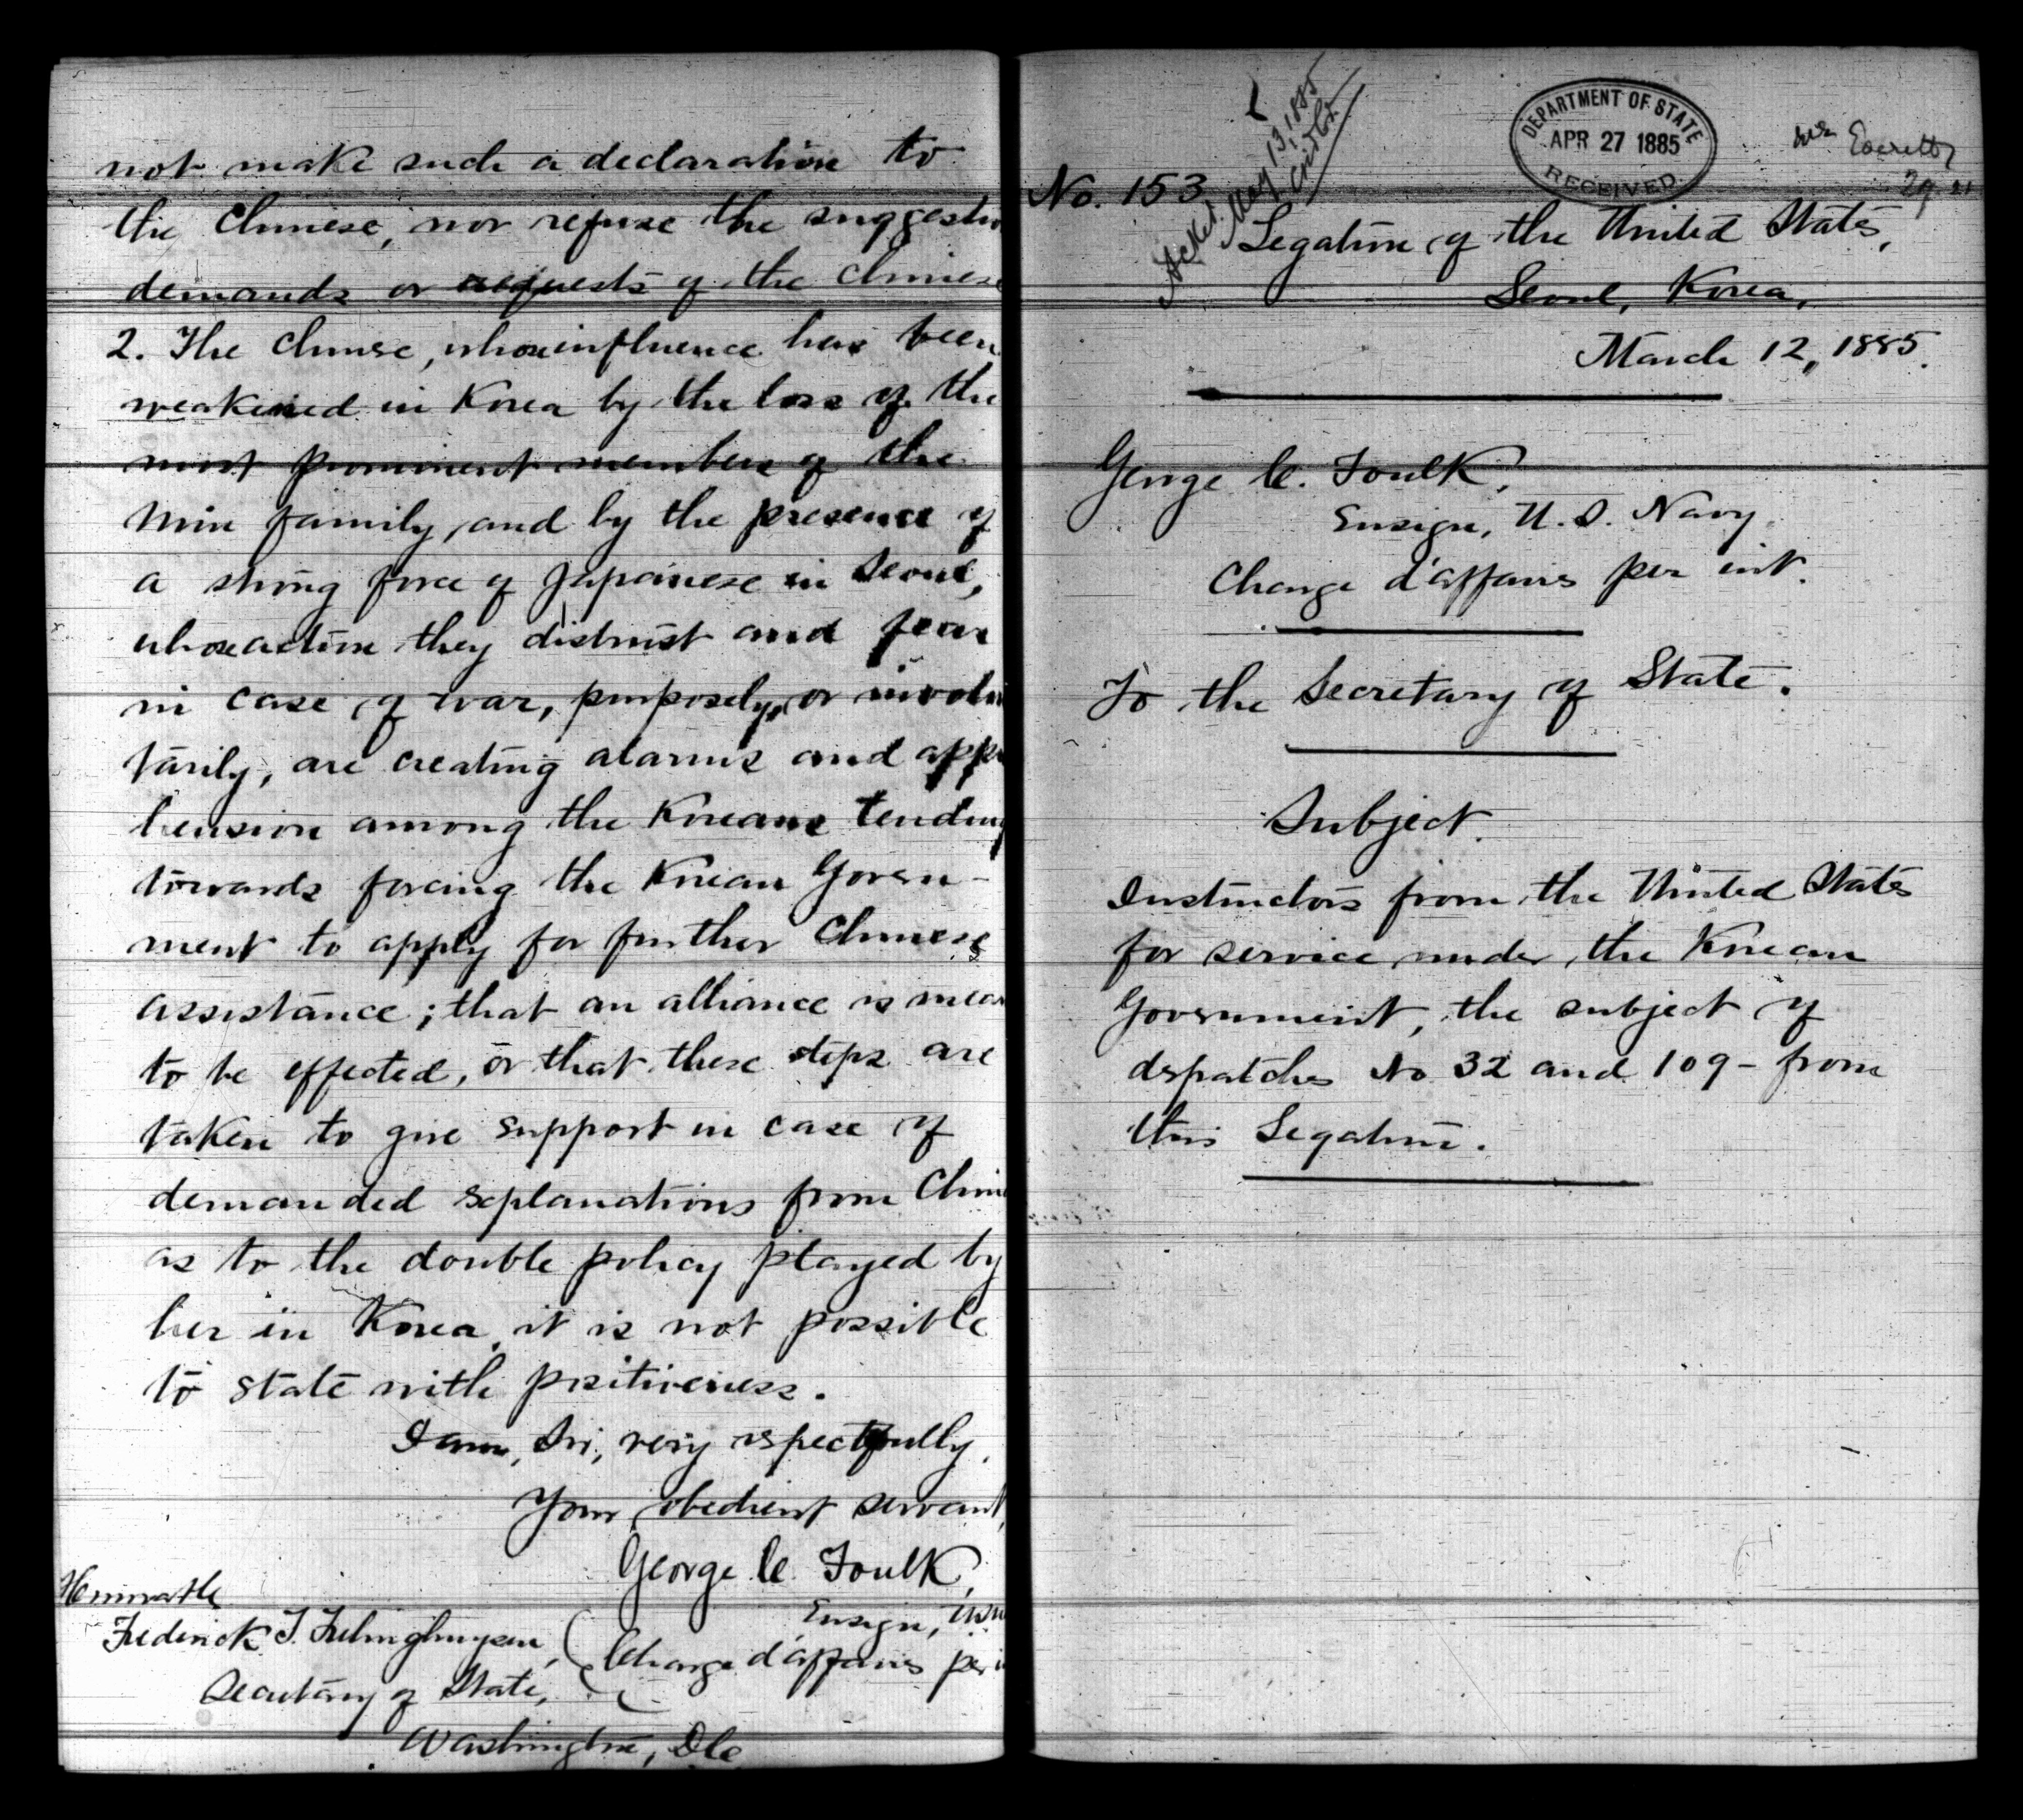 not make such a declaration to
the Chinese, nor refuse the suggestio
demands or requests of the Chinese
2. The Chinese, whose influence has been
weakened in Korea by the loss of the
most prominent members of the
Min family, and by the presence of
a strong force of Japanese in Seoul,
whose action they distrust and fear
in case of war, purposely, or involun
tarily, are creating alarms and appre
hension among the Koreans tending
towards forcing the Korean Govern-
ment to apply for further Chinese
assistance; that an alliance is mean
to be effected, or that these steps are
taken to give support in case of
demanded explanations from China
as to the double policy played by
her in Korea, it is not possible
to state with positiveness.
I am, Sir, very respectfully,
Your obedient servant,
George C. Foulk,
Ensign, USN
Chargé d'affaires per i
Honorable
Frederick T. Frelinghuysen,
Secretary of State,
Washington, D.C.
Acked. May 13, 1885
DEPARTMENT OF STATE
APR 27 1885
RECEIVED
Mr Everett
No. 153
Legation of the United States,
Seoul, Korea,
March 12, 1885.
George C. Foulk,
Ensign, U.S. Navy
Charge d'affaires per int.
To the Secretary of State.
Subject.
Instructors from the United States
for service under the Korean
Government, the subject of
dispatches No 32 and 109 - from
this Legation.